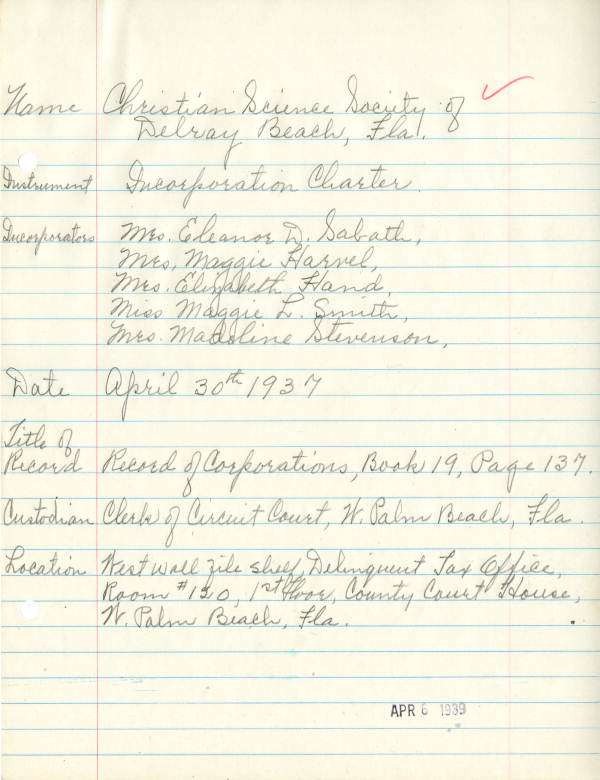 Name Christian Science Society of
Delray Beach, Fla.
Instrument Incorporation Charter.
Incorporators Mrs. Eleanor D. Sabath,
Mrs. Maggie Harvel,
Mrs. Elizabeth Hand,
Miss Maggie L. Smith,
Mrs. Madeline Stevenson,
Date April 30th 1937
Title of
Record Record of Corporations, Book 19, Page 137.
Custodian Clerk of Circuit Court, W. Palm Beach, Fla.
Location West wall file shelf, Delinquent Tax Office,
Room # 1st Floor, County Court House,
W. Palm Beach, Fla.
APR 6 1939